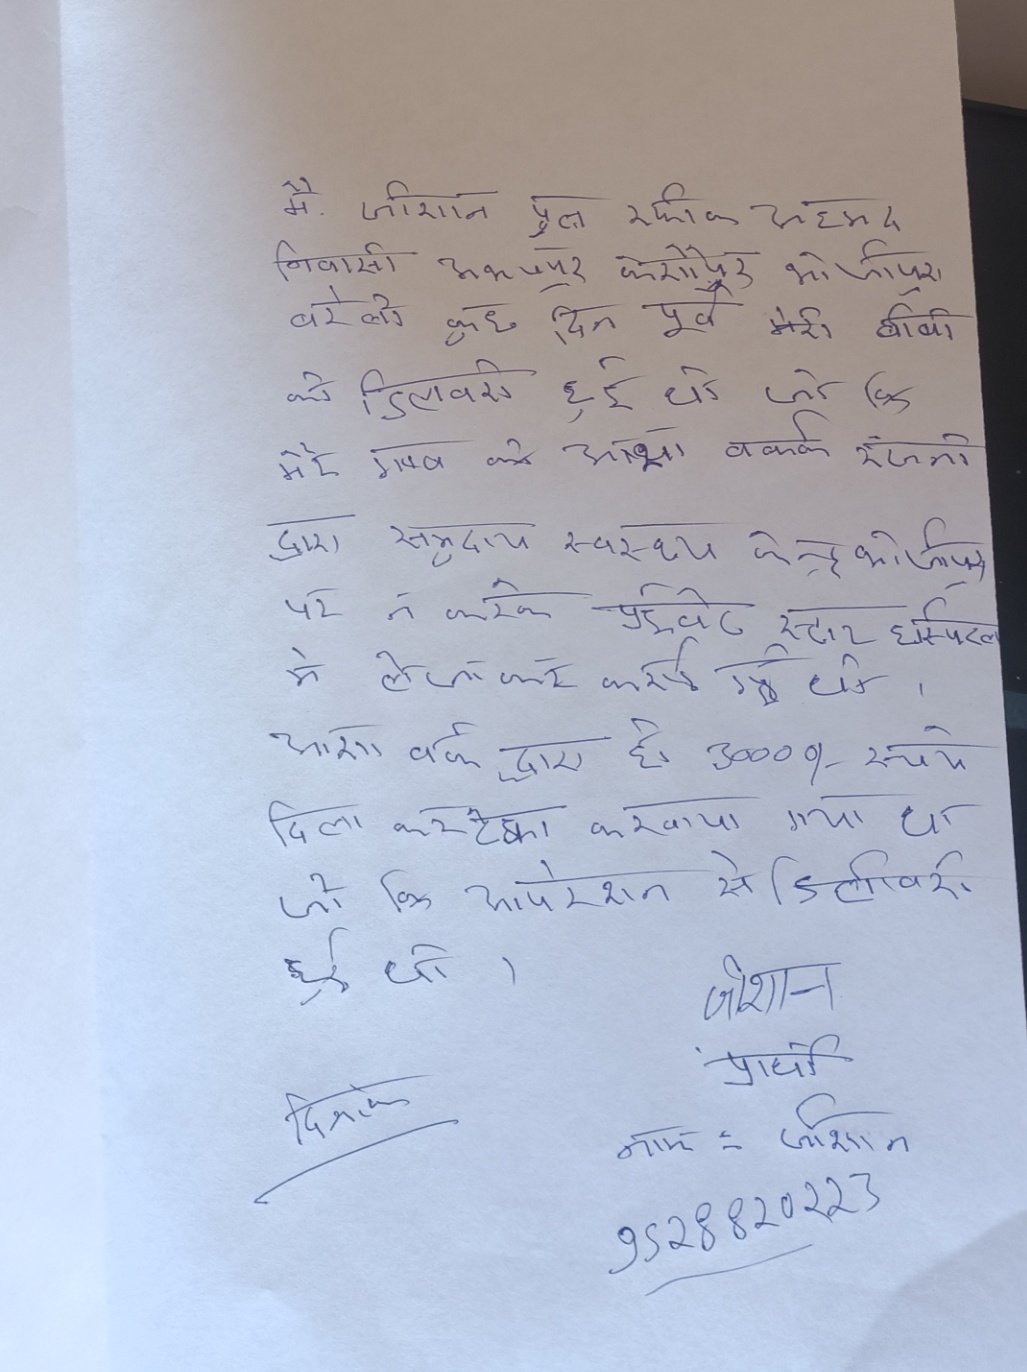 मै. जीशान पुत्र रफीक अहमद
निवासी अभयपुर केशोपुर भोजीपुरा
बरेली कुछ दिन पूर्व मेरी बीबी
की डिलवरी हुई थी जो कि
मेरे गांव की आशा वर्कर रजनी
द्वारा समुदाय स्वस्थय केन्द्र भोजीपुरा
पर न कराके प्राईवेट स्टार हॉस्पिटल
मे लेजाकर कराई गई थी ।
आशा वर्कर द्वारा ही 30000/- रूपये
दिला कर करवाया गया था
जो कि आपरेशन से डिलीवरी
हुई थी ।
जीशान
प्रार्थी
दिनांक
नाम = जीशान
9528820223